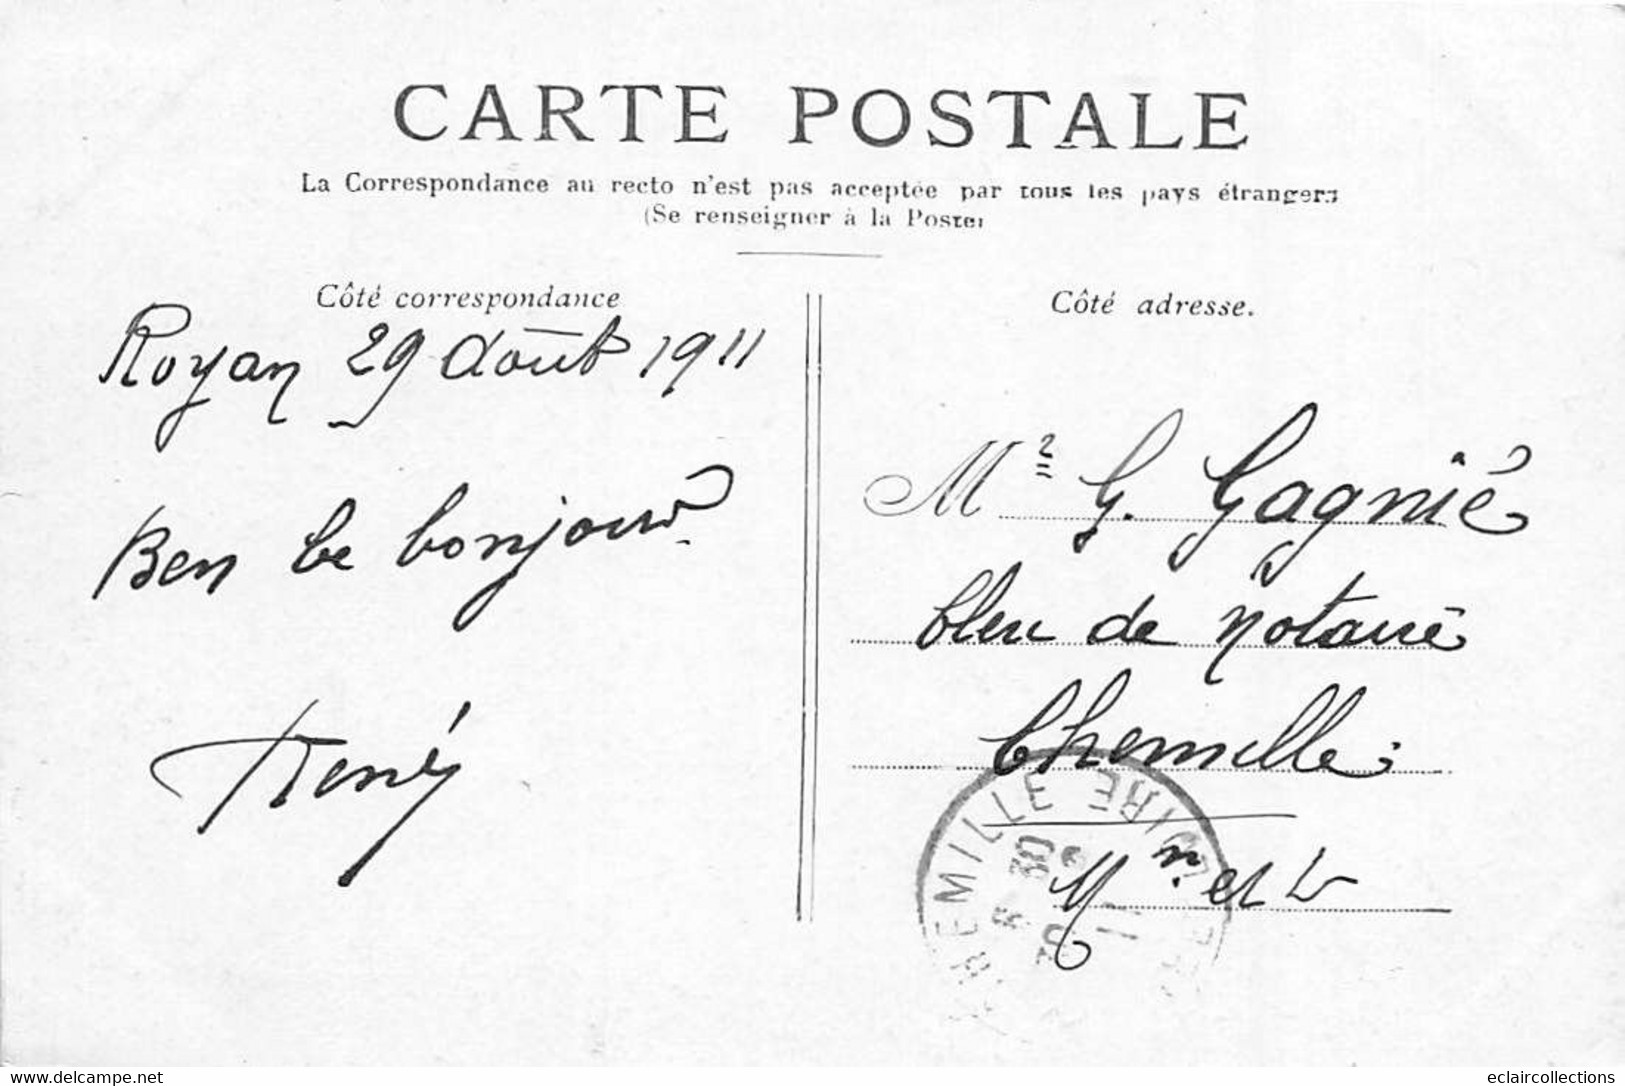 CARTE POSTALE
La Correspondance au recto n'est pas acceptée par tous les pays étrangers
(Se renseigner à la Poste)
Côté correspondance
Royan 29 août 1911
Ben le bonjour
René
Côté adresse.
Mr G. Gagnié
Clerc de Notaire
Chemille
Mne et L
CHEMILLE
LOIRE
6 30
30
11
www.delcampe.net
eclaircollections